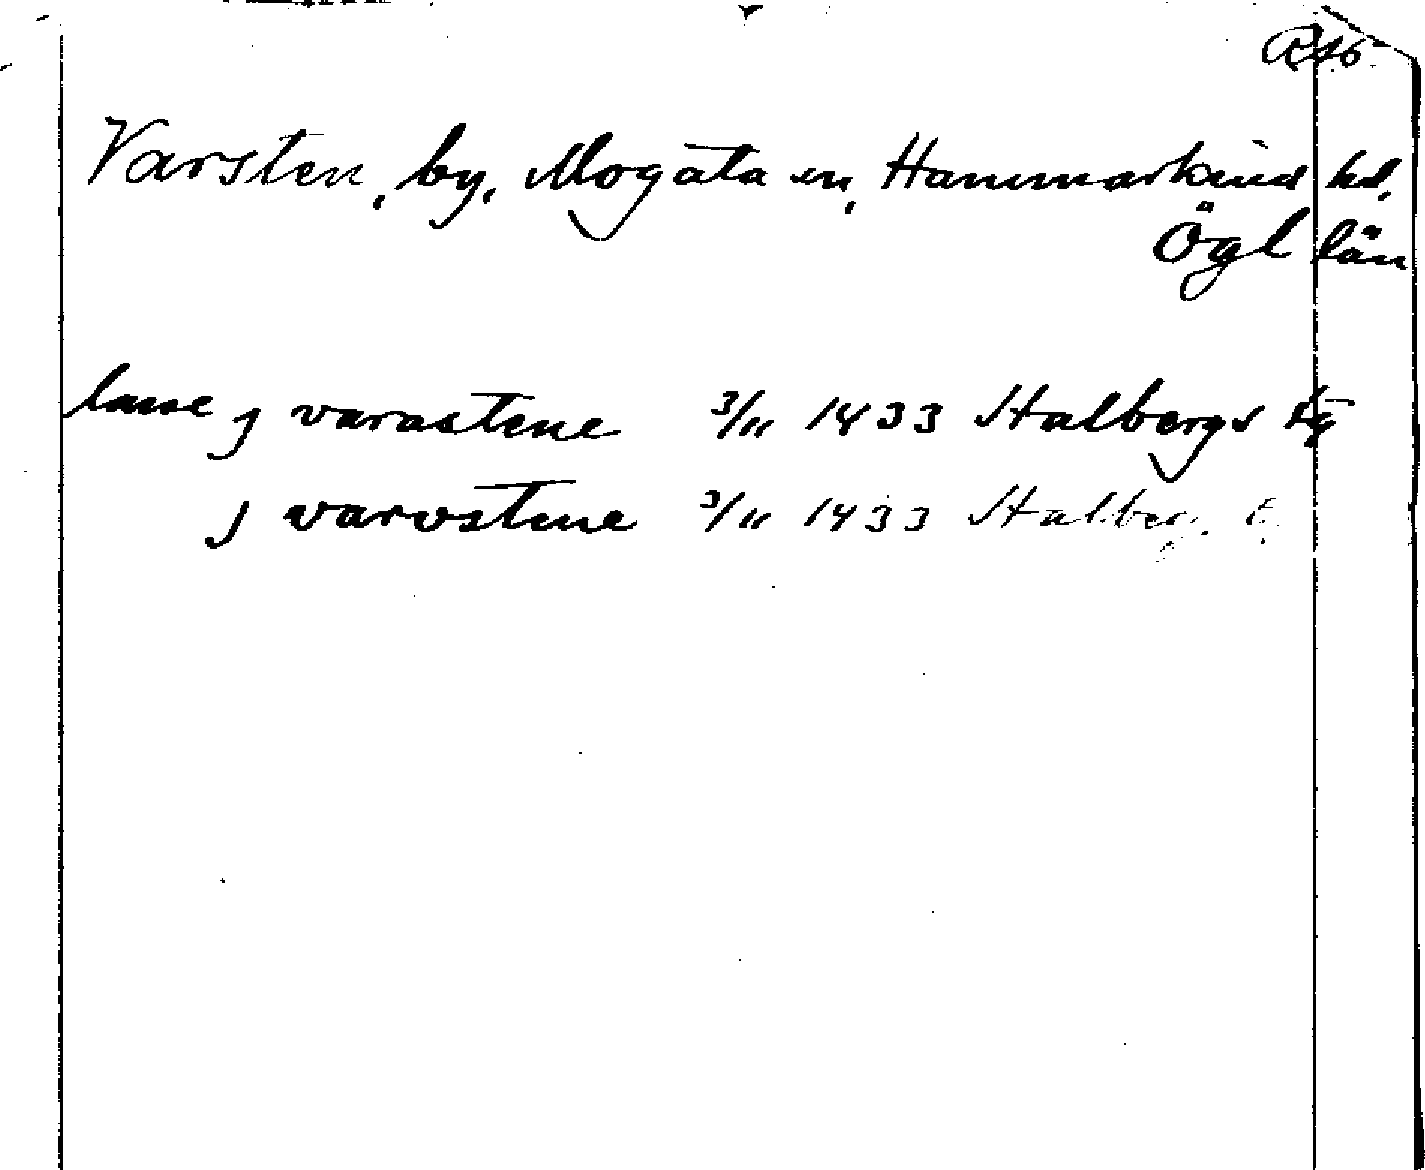 Varsten, by, Mogata sn, Hammarkind hd,
Ögl län
lasse j varastene 3/11 1433 Stalbergs
j varvstene 3/11 1433 Stalberg